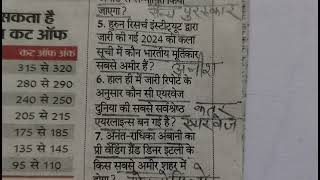 सकता है
कट ऑफ
कट ऑफ अंक
315 से 320
280 से 290
240 से 250
205 से 215
175 से 185
135 से 145
95 से 110
जाएगा? पुरस्कार
5. हुरुन रिसर्च इंस्टीट्यूट द्वारा
जारी की गई 2024 की कला
सूची में कौन भारतीय मूर्तिकार
सबसे अमीर हैं? अनीश
6. हाल ही में जारी रिपोर्ट के
अनुसार कौन सी एयरवेज
दुनिया की सबसे सर्वश्रेष्ठ कतर
एयरलाइन्स बन गई है?
7. अनंत-राधिका अंबानी का
प्री वेडिंग ग्रैंड डिनर इटली के
किस सबसे अमीर शहर में